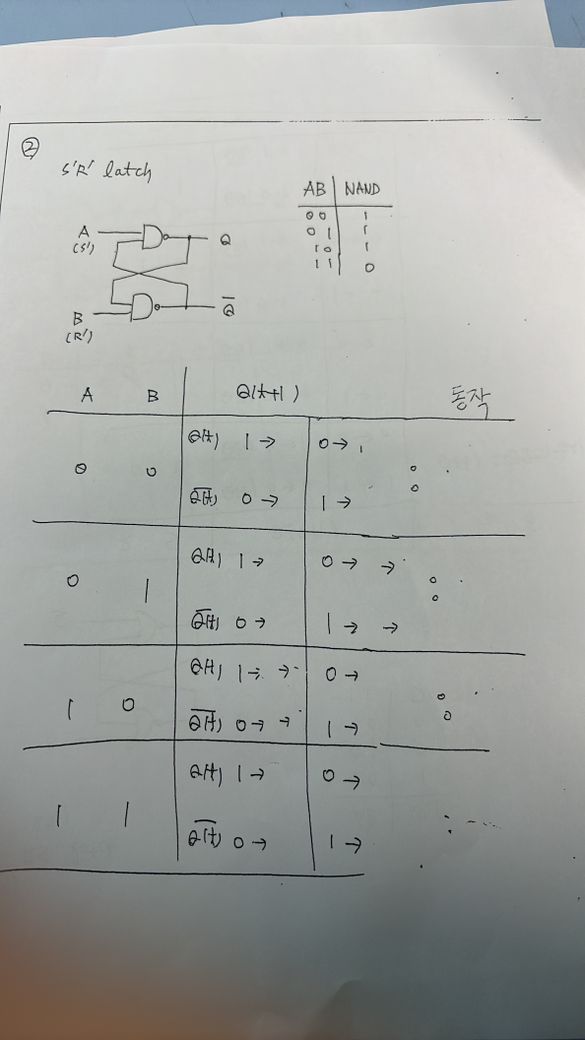 ②
S'R' latch
A
(S')
Q
B
(R')
Q̅
AB NAND
00 1
01 1
10 1
11 0
A B Q(t+1) 동작
0 0
Q(t) 1 → 0 →
Q̅(t) 0 → 1 →
0 1
Q(t) 1 → 0 → →
Q̅(t) 0 → 1 → →
1 0
Q(t) 1 → → 0 →
Q̅(t) 0 → → 1 →
1 1
Q(t) 1 → 0 →
Q̅(t) 0 → 1 →